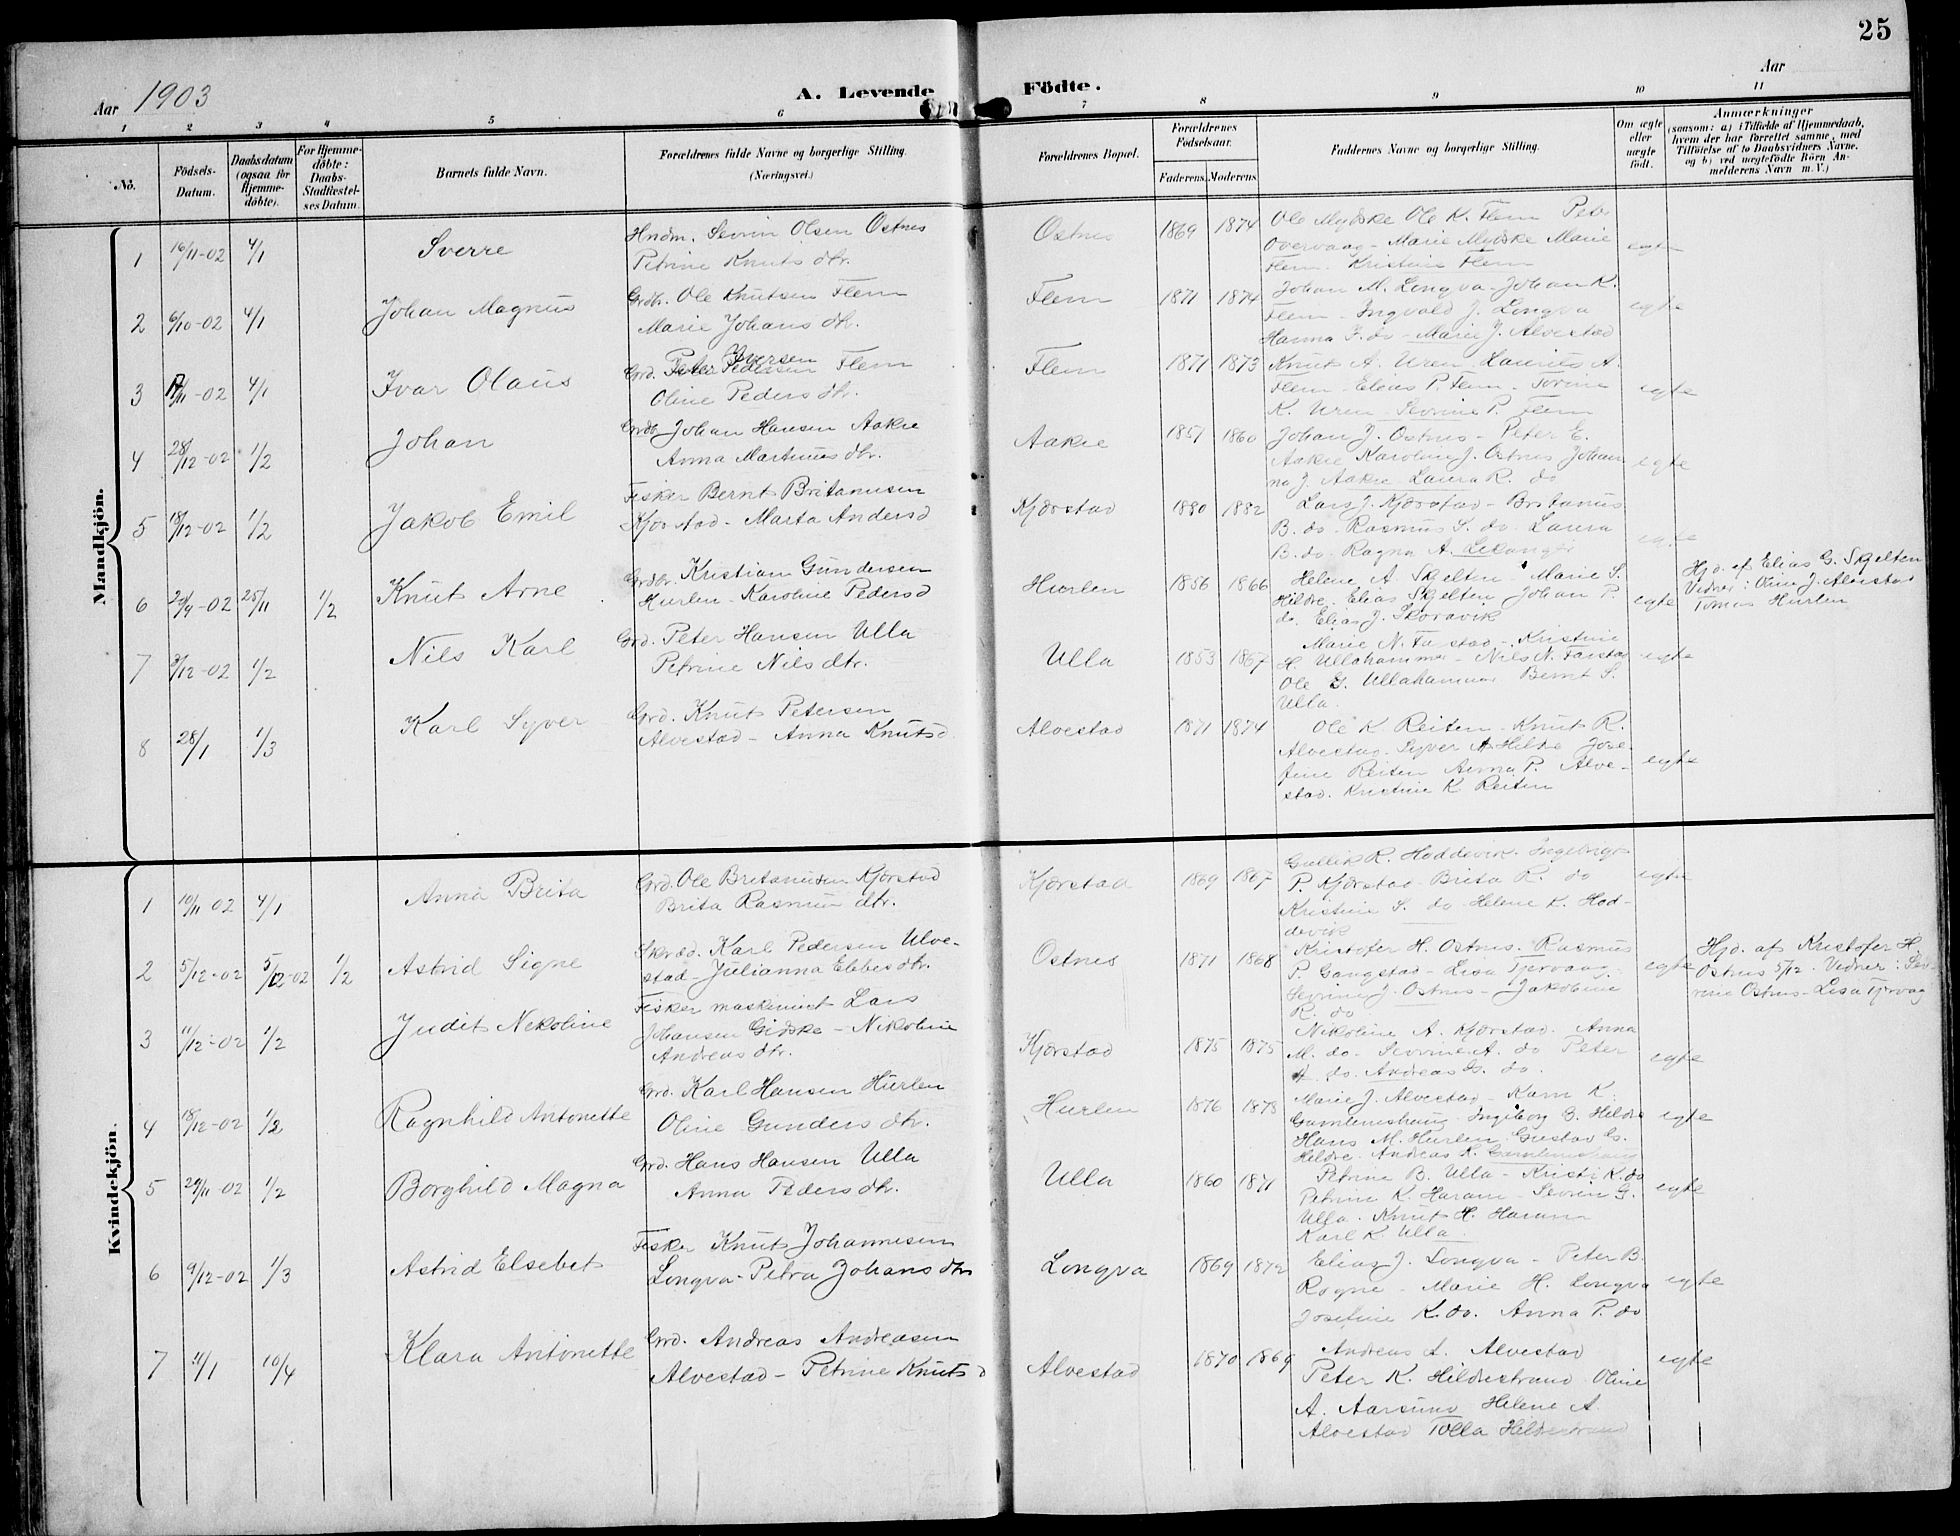 25
Aar 1903
A. Levende Födte.
Aar
1 2 3 4 5 6 7 8 9 10 11
No.
Födsels-Datum.
Daabsdatum (ogsaa for Hjemme-döbte).
For Hjemme-döbte: Daabs-Stadfæstel-ses Datum.
Barnets fulde Navn.
Forældrenes fulde Navne og borgerlige Stilling. (Næringsvei.)
Forældrenes Bopæl.
Forældrenes Födselsaar.
Faderens. Moderens.
Faddernes Navne og borgerlige Stilling.
Om ægte eller uægte födt.
Anmærkninger
(saasom: a) i Tilfælde af Hjemmedaab,
hvem der har forrettet samme, med
Tilföielse af to Daabsvidners Navne,
og b) ved uægtefödte Börn An-
melderens Navn m. V.)
Mandkjön.
1 16/11-02 4/1 Sverre
Hndm. Sevrin Olsen Ostnes
Petrine Knutsdtr.
Ostnes 1869 1874
Ole Mydske Ole K. Flem Peter
Overvaag - Marie Mydske Marie
Flem - Kristine Flem
egte
2 6/10-02 4/1 Johan Magnus
Grdbr. Ole Knutsen Flem
Marie Johansdtr.
Flem 1871 1874
Johan M. Longva - Johan K.
Flem - Ingvald J. Longva
Hanna F. do - Marie J. Alvestad
egte
3 /11-02 4/1 Ivar Olaus
Iversen
Grd. Peter Pedersen Flem
Oline Pedersdtr.
Flem 1871 1873
Knut A. Uren - Laurits A.
Flem - Elias P. Flem - Torine
K. Uren - Sevrine P. Flem
egte
4 28/12-02 1/2 Johan
Grdb. Johan Hansen Aakre
Anna Martinusdtr.
Aakre 1857 1860
Johan J. Ostnes - Peter E.
Aakre Karoline J. Ostnes Johan
na J. Aakre Laura R. do
egte
5 18/12-02 1/2 Jakob Emil
Fisker Bernt Britanusen
Kjærstad - Marta Andersd
Kjærstad 1880 1882
Lars J. Kjærstad - Britanus
B. do - Rasmus S. do - Laura
B. do - Ragna A.
egte
6 29/9-02 25/11 1/2 Knut Arne
Grdbr. Kristian Gundersen
Hurlen - Karoline Pedersd
Hurlen 1856 1866
Helene A. Skjelten - Marie S.
Hildre - Elias Skjelten Johan P.
do. Elias J. Skoravik
egte
Hjd. af Elias G. Skjelten
Vidner: Oline J. Alvestad
Tomas Hurlen
7 3/12-02 1/2 Nils Karl
Grd. Peter Hansen Ulla
Petrine Nilsdtr.
Ulla 1853 1867
Marie N. Farstad - Kristine
H. Ullahammer - Nils N. Farstad
Ole G. Ullahammer Bernt S.
Ulla.
egte
8 28/1 1/3 Karl Syver
Grd. Knut Petersen
Alvestad - Anna Knutsd.
Alvestad 1871 1874
Ole K Reiten - Knut R.
Alvestad - Syver A Hildre Jose-
fine Reiten Anna P. Alve-
stad. Kristine K Reiten
egte
Kvindekjön.
1 10/11 02 4/1 Anna Brita
Grd. Ole Britanusen Kjærstad
Brita Rasmusdtr.
Kjærstad 1869 1867
Gullik R. Hoddevik. Ingeborg
P. Kjærstad - Brita R. do
Kristine S. do - Helene K. Hod-
devik
egte
2 5/12-02 5/12-02 1/2 Astrid Signe
Skræd. Karl Pedersen Alve-
stad - Julianna Ebbesdtr.
Ostnes 1871 1868
Kristofer H. Ostnes - Rasmus
P. Gangstad - Lisa Tjervaag -
Sevrine J. Ostnes - Jakobine
R. do
egte
Hjd. af Kristofer H.
Ostnes 5/12 - Vidner: Sev-
rine Ostnes - Lisa Tjervaag
3 11/12-02 1/2 Judit Nekoline
Fisker maskinist Lars
Johansen Gidske - Nikoline
Andreasdtr.
Kjærstad 1875 1875
Nikoline A. Kjærstad. Anna
M. do. Sevrine A. do Peter
A. do. Andreas G. do.
egte
4 18/12-02 1/2 Ragnhild Antonette
Grd. Karl Hansen Hurlen
Oline Gundersdtr.
Hurlen 1876 1878
Marie J. Alvestad - Karn K.
Gamlemshaug - Ingeborg B. Hildre
Hans M. Hurlen Gustav G.
Hildre. Andreas K. Gamlemshaug
egte
5 29/11-02 1/2 Borghild Magna
Grd. Hans Hansen Ulla
Anna Pedersdtr.
Ulla 1860 1871
Petrine B. Ulla - Kristi K. do
Petrine K. Haram - Sevrin G.
Ulla. Knut H. Haram
Karl K Ulla.
egte
6 9/12-02 1/3 Astrid Elsebet
Fisker Knut Johannesen
Longva - Petra Johansdtr
Longva 1869 1872
Elias J. Longva - Peter B.
Rogne - Marie H. Longva
Josefine K. do. Anna P. do
egte
7 11/1 10/4 Klara Antonette
Grd. Andreas Andreasen
Alvestad - Petrine Knutsd
Alvestad 1870 1869
Andreas A. Alvestad
Peter K. Hildrestrand Oline
A. Aarsund Helene A.
Alvestad Tolla Hildrestrand
egte